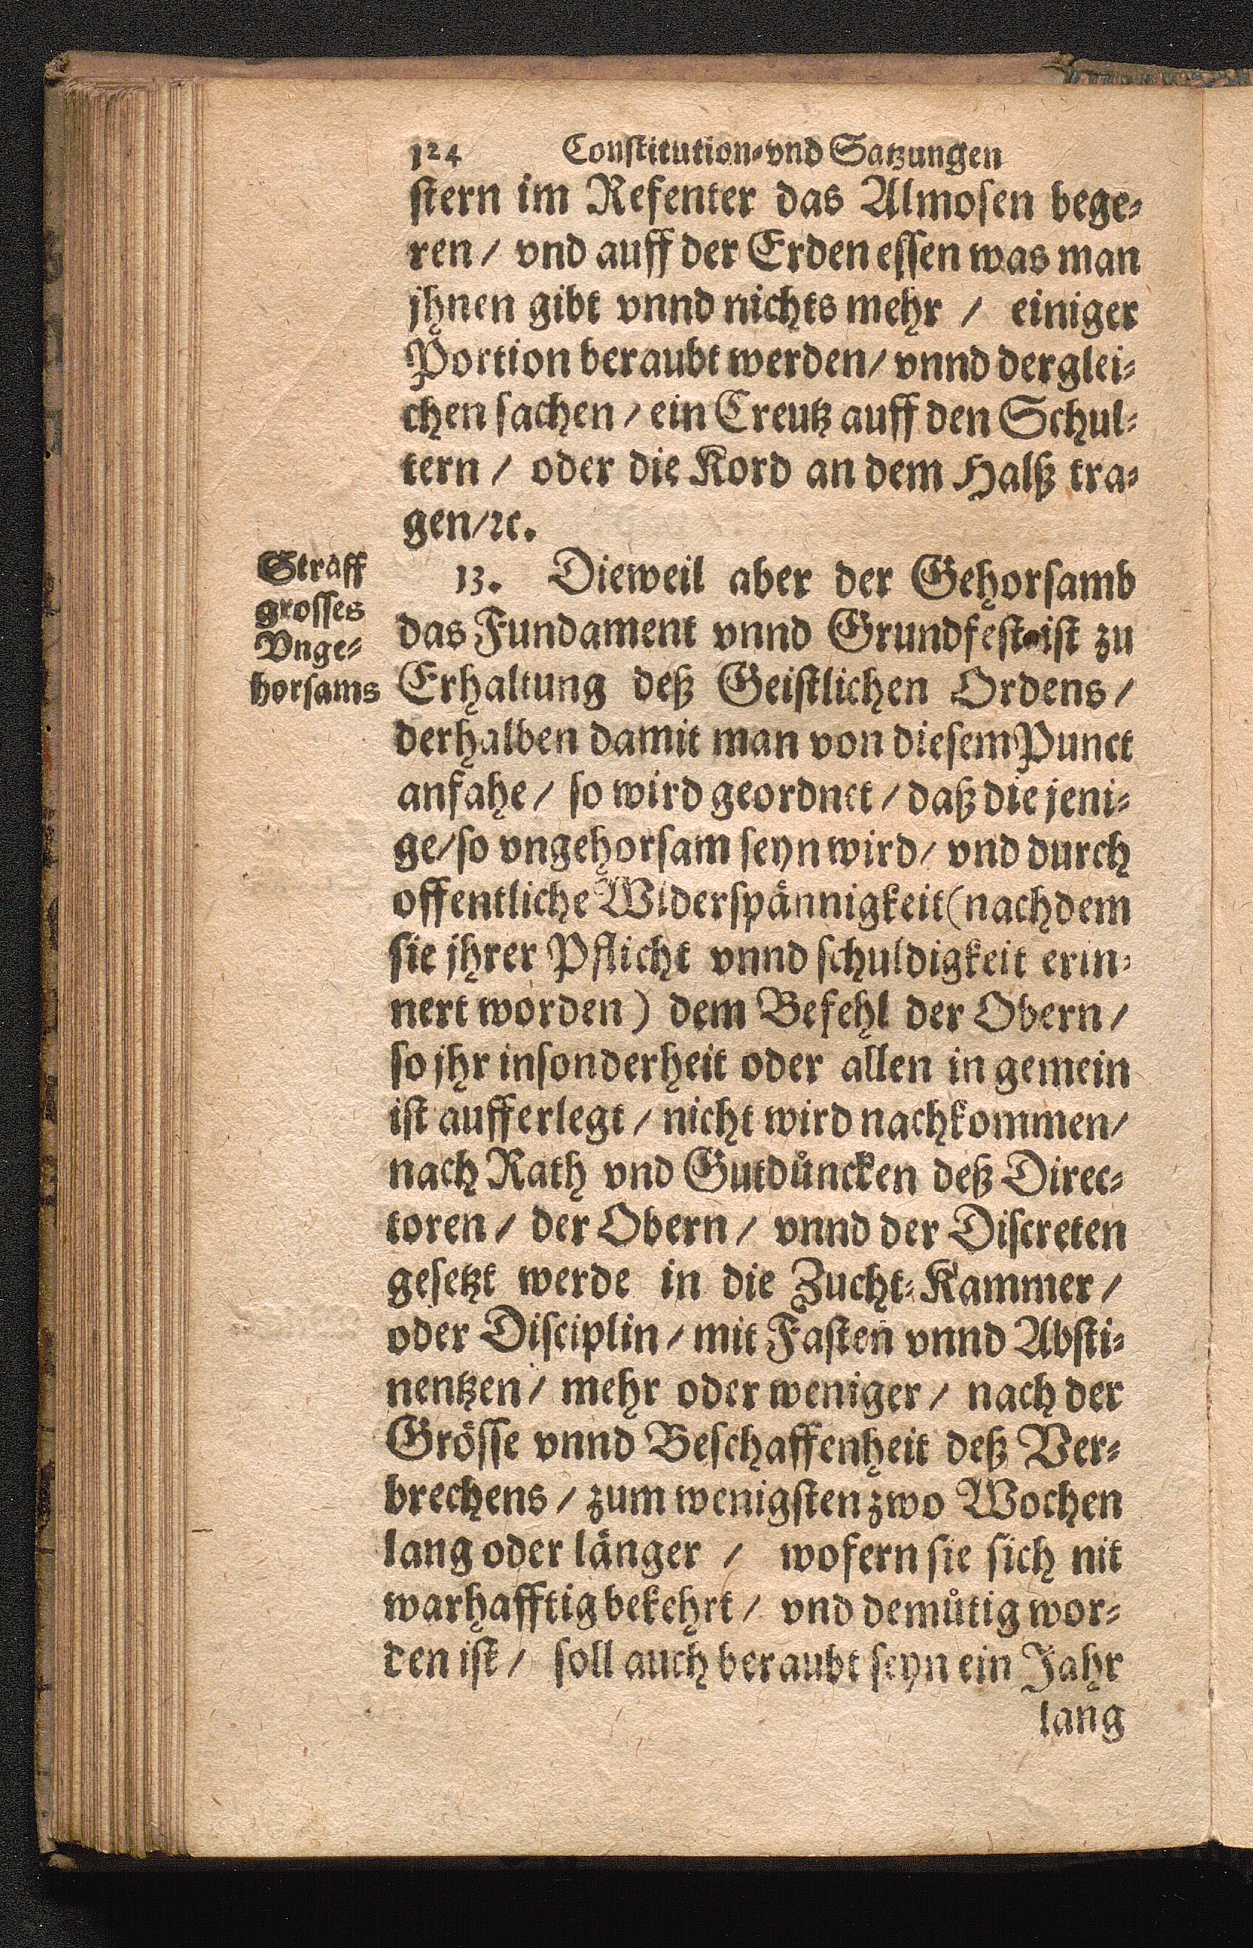 124 Constitution-vnd Satzungen
stern im Refenter das Almosen bege-
ren / vnd auff der Erden essen was man
jhnen gibt vnnd nichts mehr / einiger
Portion beraubt werden / vnnd derglei-
chen sachen / ein Creutz auff den Schul-
tern / oder die Kord an dem Halß tra-
gen / ꝛc.
Straff
grosses
Vnge-
horsams
13. Dieweil aber der Gehorsamb
das Fundament vnnd Grundfest ist zu
Erhaltung deß Geistlichen Ordens /
derhalben damit man von diesem Punct
anfahe / so wird geordnet / daß die jeni-
ge / so vngehorsam seyn wird / vnd durch
offentliche Widerspännigkeit (nachdem
sie jhrer Pflicht vnnd schuldigkeit erin-
nert worden) dem Befehl der Obern /
so jhr insonderheit oder allen in gemein
ist aufferlegt / nicht wird nachkommen /
nach Rath vnd Gutdůncken deß Direc-
toren / der Obern / vnnd der Discreten
gesetzt werde in die Zucht-Kammer /
oder Disciplin / mit Fasten vnnd Absti-
nentzen / mehr oder weniger / nach der
Grösse vnnd Beschaffenheit deß Ver-
brechens / zum wenigsten zwo Wochen
lang oder länger / wofern sie sich nit
warhafftig bekehrt / vnd demůtig wor-
den ist / soll auch beraubt seyn ein Jahr
lang